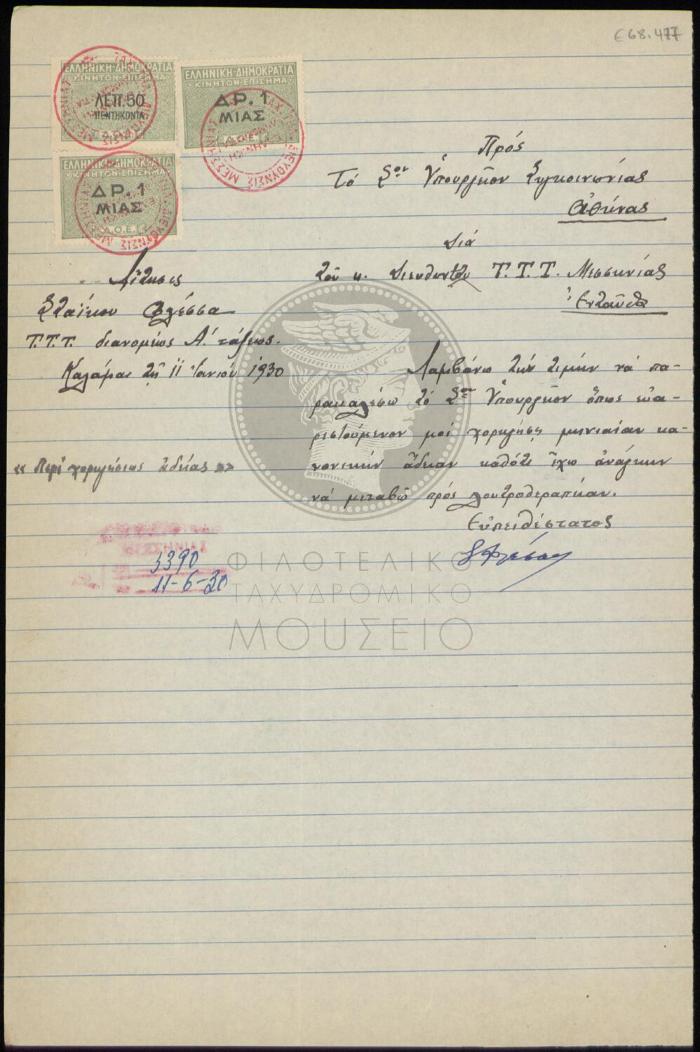 Ε68.477
ΕΛΛΗΝΙΚΗ·ΔΗΜΟΚΡΑΤΙΑ
ΚΙΝΗΤΟΝ·ΕΠΙΣΗΜΑ
ΛΕΠ.50
ΠΕΝΤΗΚΟΝΤΑ
ΕΛΛΗΝΙΚΗ·ΔΗΜΟΚΡΑΤΙΑ
ΚΙΝΗΤΟΝ·ΕΠΙΣΗΜΑ
ΔΡ.1
ΜΙΑΣ
ΕΛΛΗΝΙΚΗ·ΔΗΜΟΚΡΑΤΙΑ
ΔΡ.1
ΜΙΑΣ
Πρός
Τό Σον Ὑπουργεῖον Συγκοινωνίας
Ἀθήνας
Διά
τοῦ κ. Διευθυντοῦ Τ.Τ.Τ. Μεσσηνίας
Ἐνταῦθα
Αἴτησις
Σταΐκου Φλέσσα
Τ.Τ.Τ. διανομέως Α′ τάξεως.
Καλάμαι τῇ 11 Ἰουνίου 1930
«Περί χορηγήσεως ἀδείας»
Λαμβάνω τήν τιμήν νά πα-
ρακαλέσω τό Σον Ὑπουργεῖον ὅπως εὐα-
ρεστούμενον μοί χορηγήσῃ μηνιαίαν κα-
νονικήν ἄδειαν καθότι ἔχω ἀνάγκην
νά μεταβῶ πρός λουτροθεραπείαν.
Εὐπειθέστατος
ΣΦλέσσας
ΜΕΣΣΗΝΙΑΣ
3390
11-6-30
ΦΙΛΟΤΕΛΙΚΟ
ΤΑΧΥΔΡΟΜΙΚΟ
ΜΟΥΣΕΙΟ